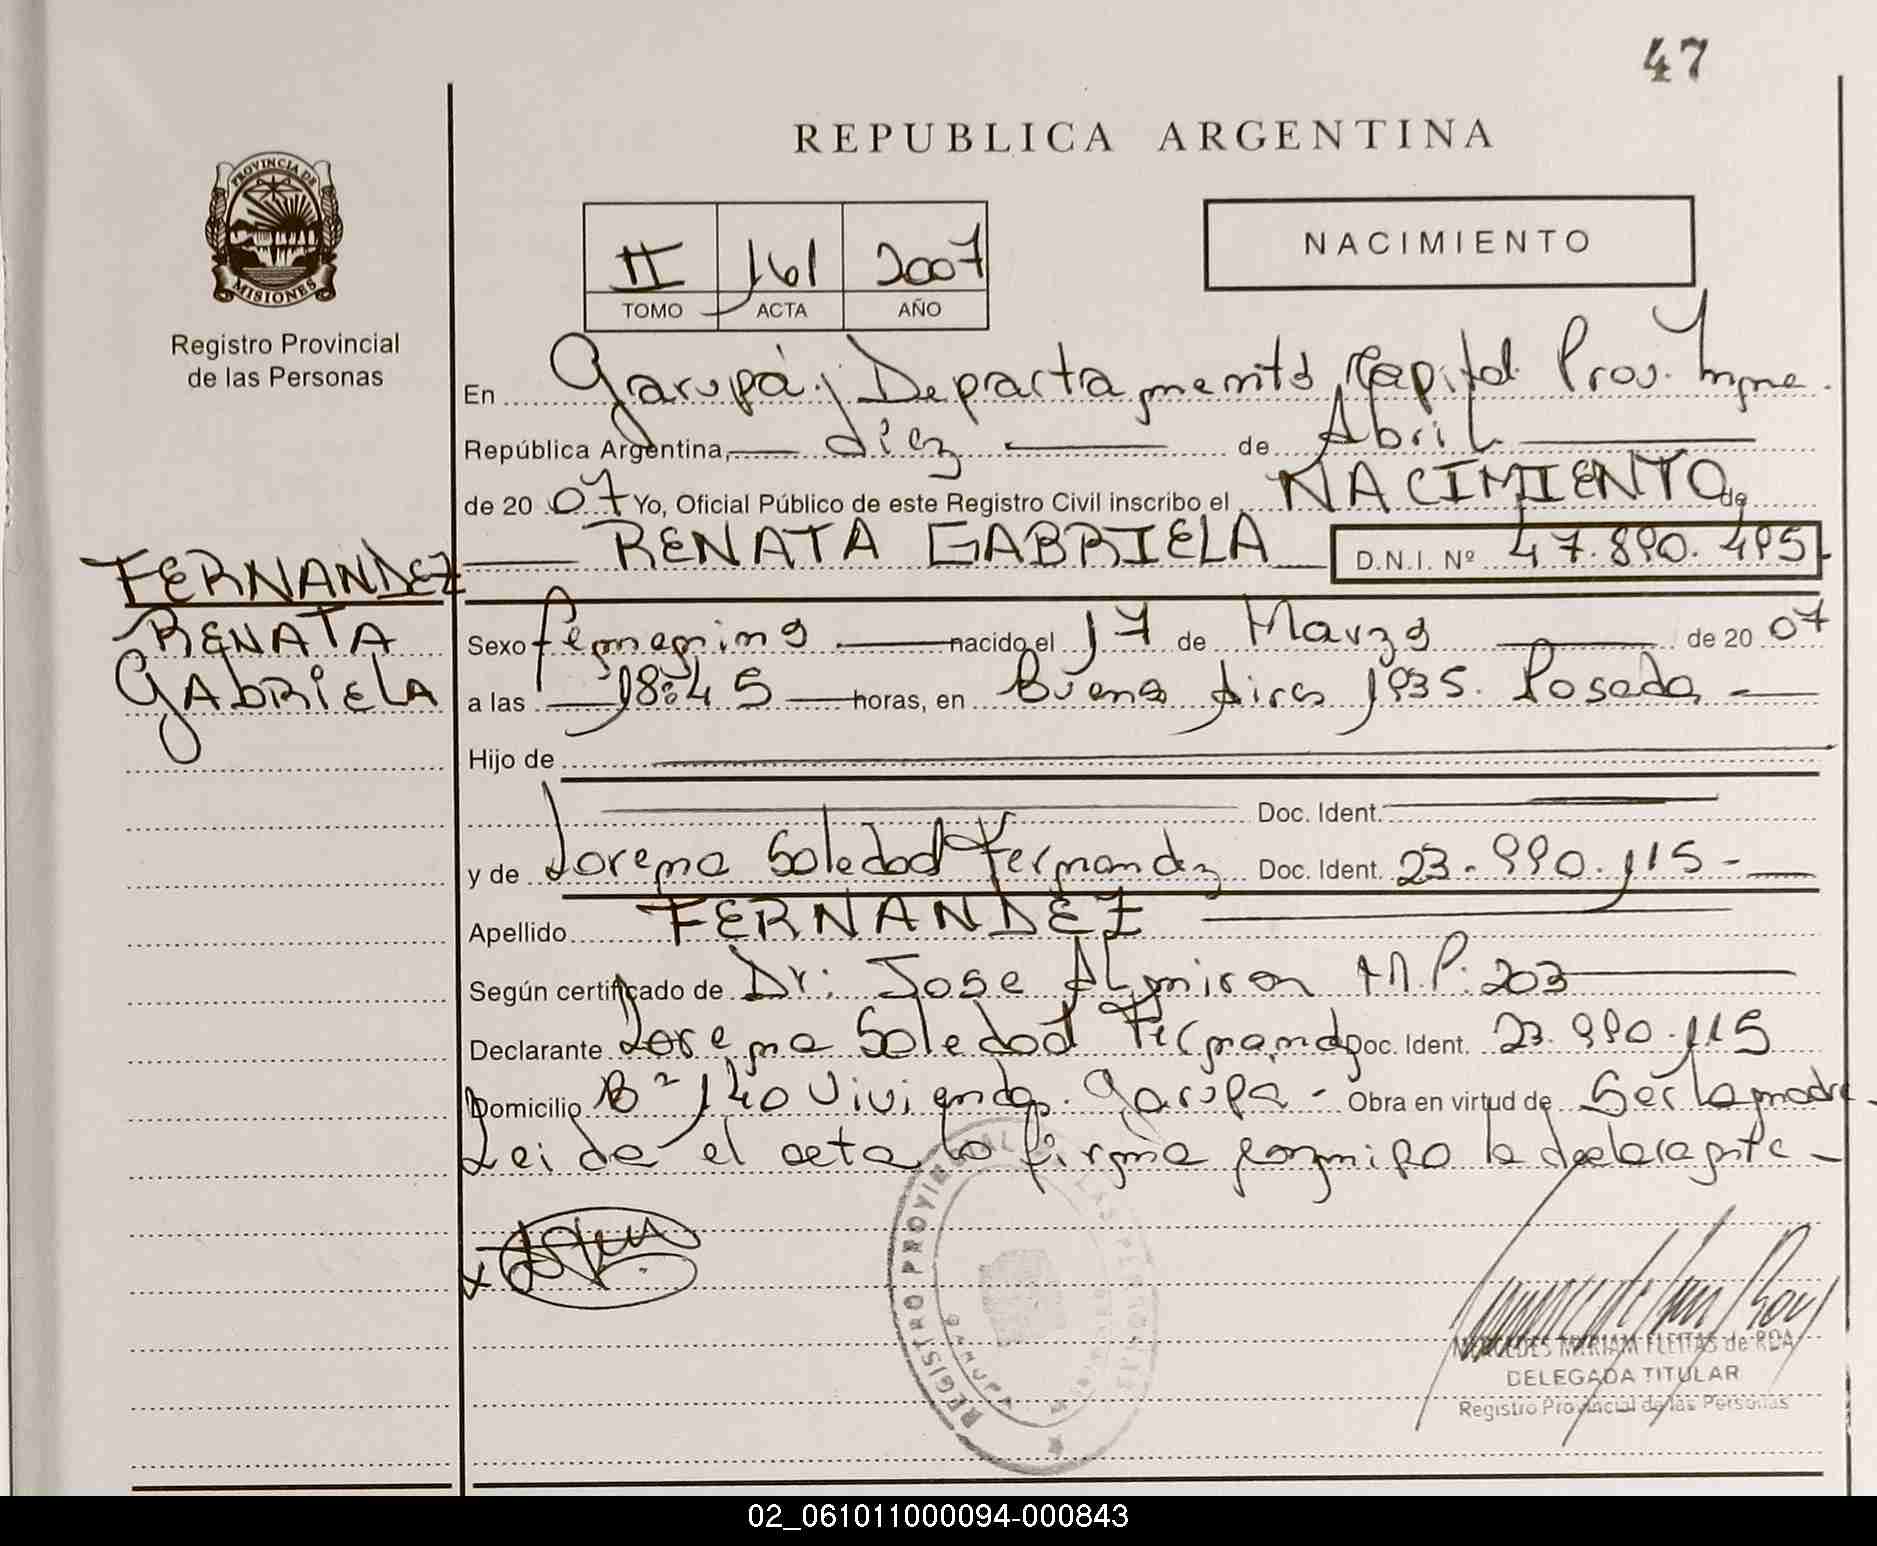 47
REPUBLICA ARGENTINA
PROVINCIA DE
MISIONES
Registro Provincial
de las Personas
II 161 2007
TOMO ACTA AÑO
NACIMIENTO
En Garupá, Departamento Capital Prov. Mnes.
República Argentina, diez de Abril
de 2007 Yo, Oficial Público de este Registro Civil inscribo el NACIMIENTO de
RENATA GABRIELA D.N.I. Nº 47.890.495
FERNANDEZ
RENATA
GABRIELA
Sexo femenino nacido el 17 de Marzo de 2007
a las 18:45 horas, en Buenos Aires 1935. Posadas -
Hijo de
Doc. Ident.
y de Lorena Soledad Fernandez Doc. Ident. 23.990.115 -
Apellido FERNANDEZ
Según certificado de Dr: Jose Almiron M.P: 203
Declarante Lorena Soledad Fernandez Doc. Ident. 23.990.115
Domicilio Bº 140 Viviendas. Garupa - Obra en virtud de Ser la madre
Leida el acta la firma conmigo la declarante -
REGISTRO PROVINCIAL DE LAS PERSONAS
MERCEDES MIRIAM FLEITAS de ROA
DELEGADA TITULAR
Registro Provincial de las Personas
02_061011000094-000843